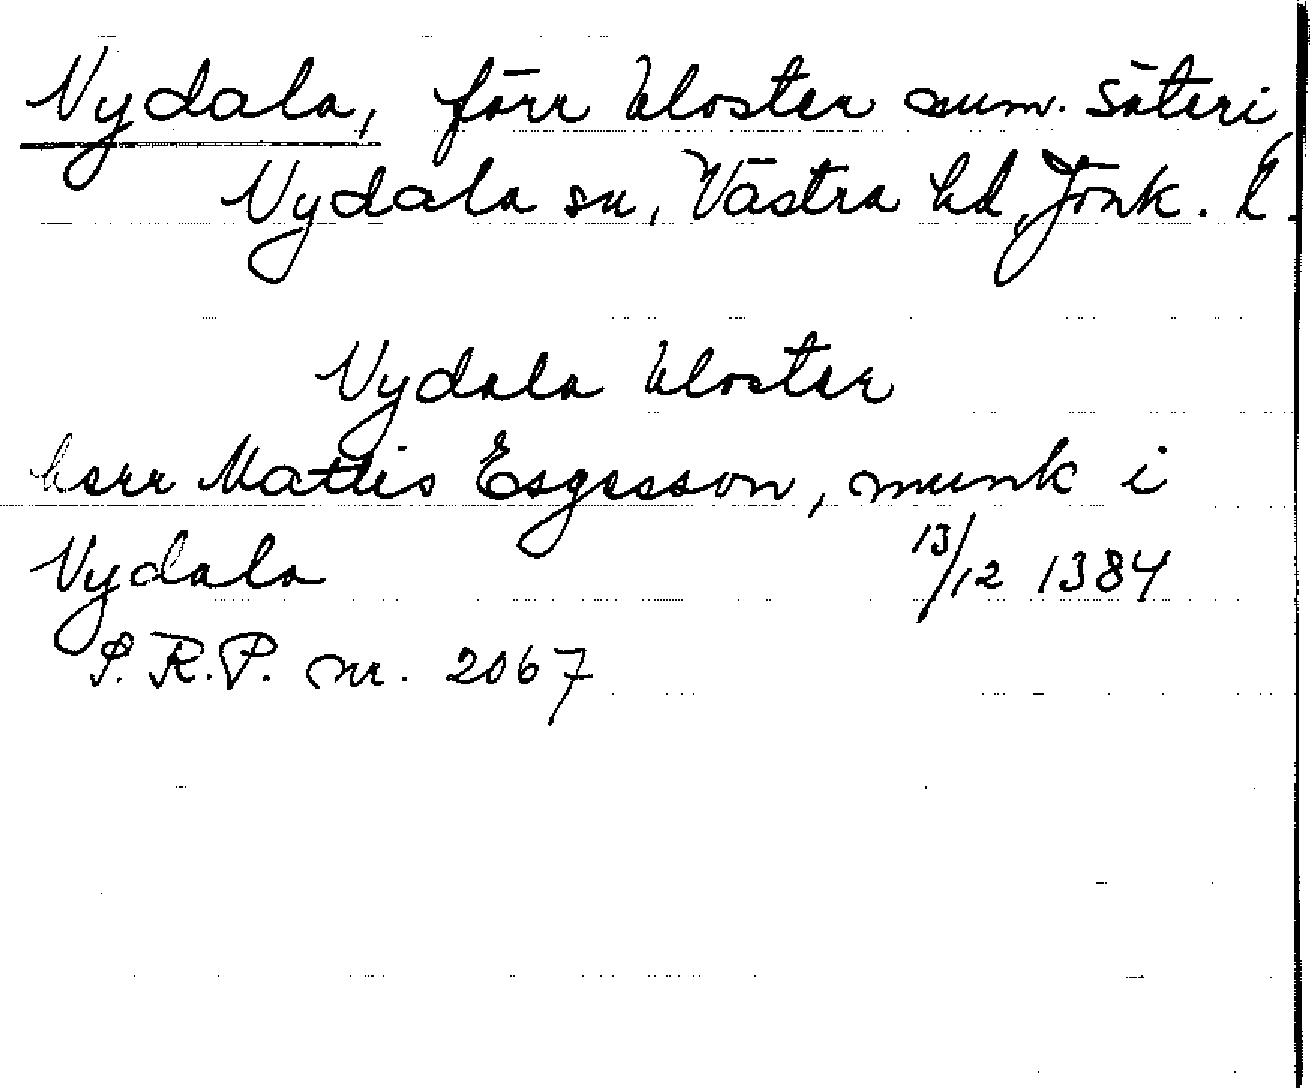 Nydala, förr kloster num. säteri,
Nydala sn, Västra hd, Jönk. l.
Nydala kloster
herr Mattis Esgesson, munk i
Nydala 13/12 1384
S.R.P. nr. 2067